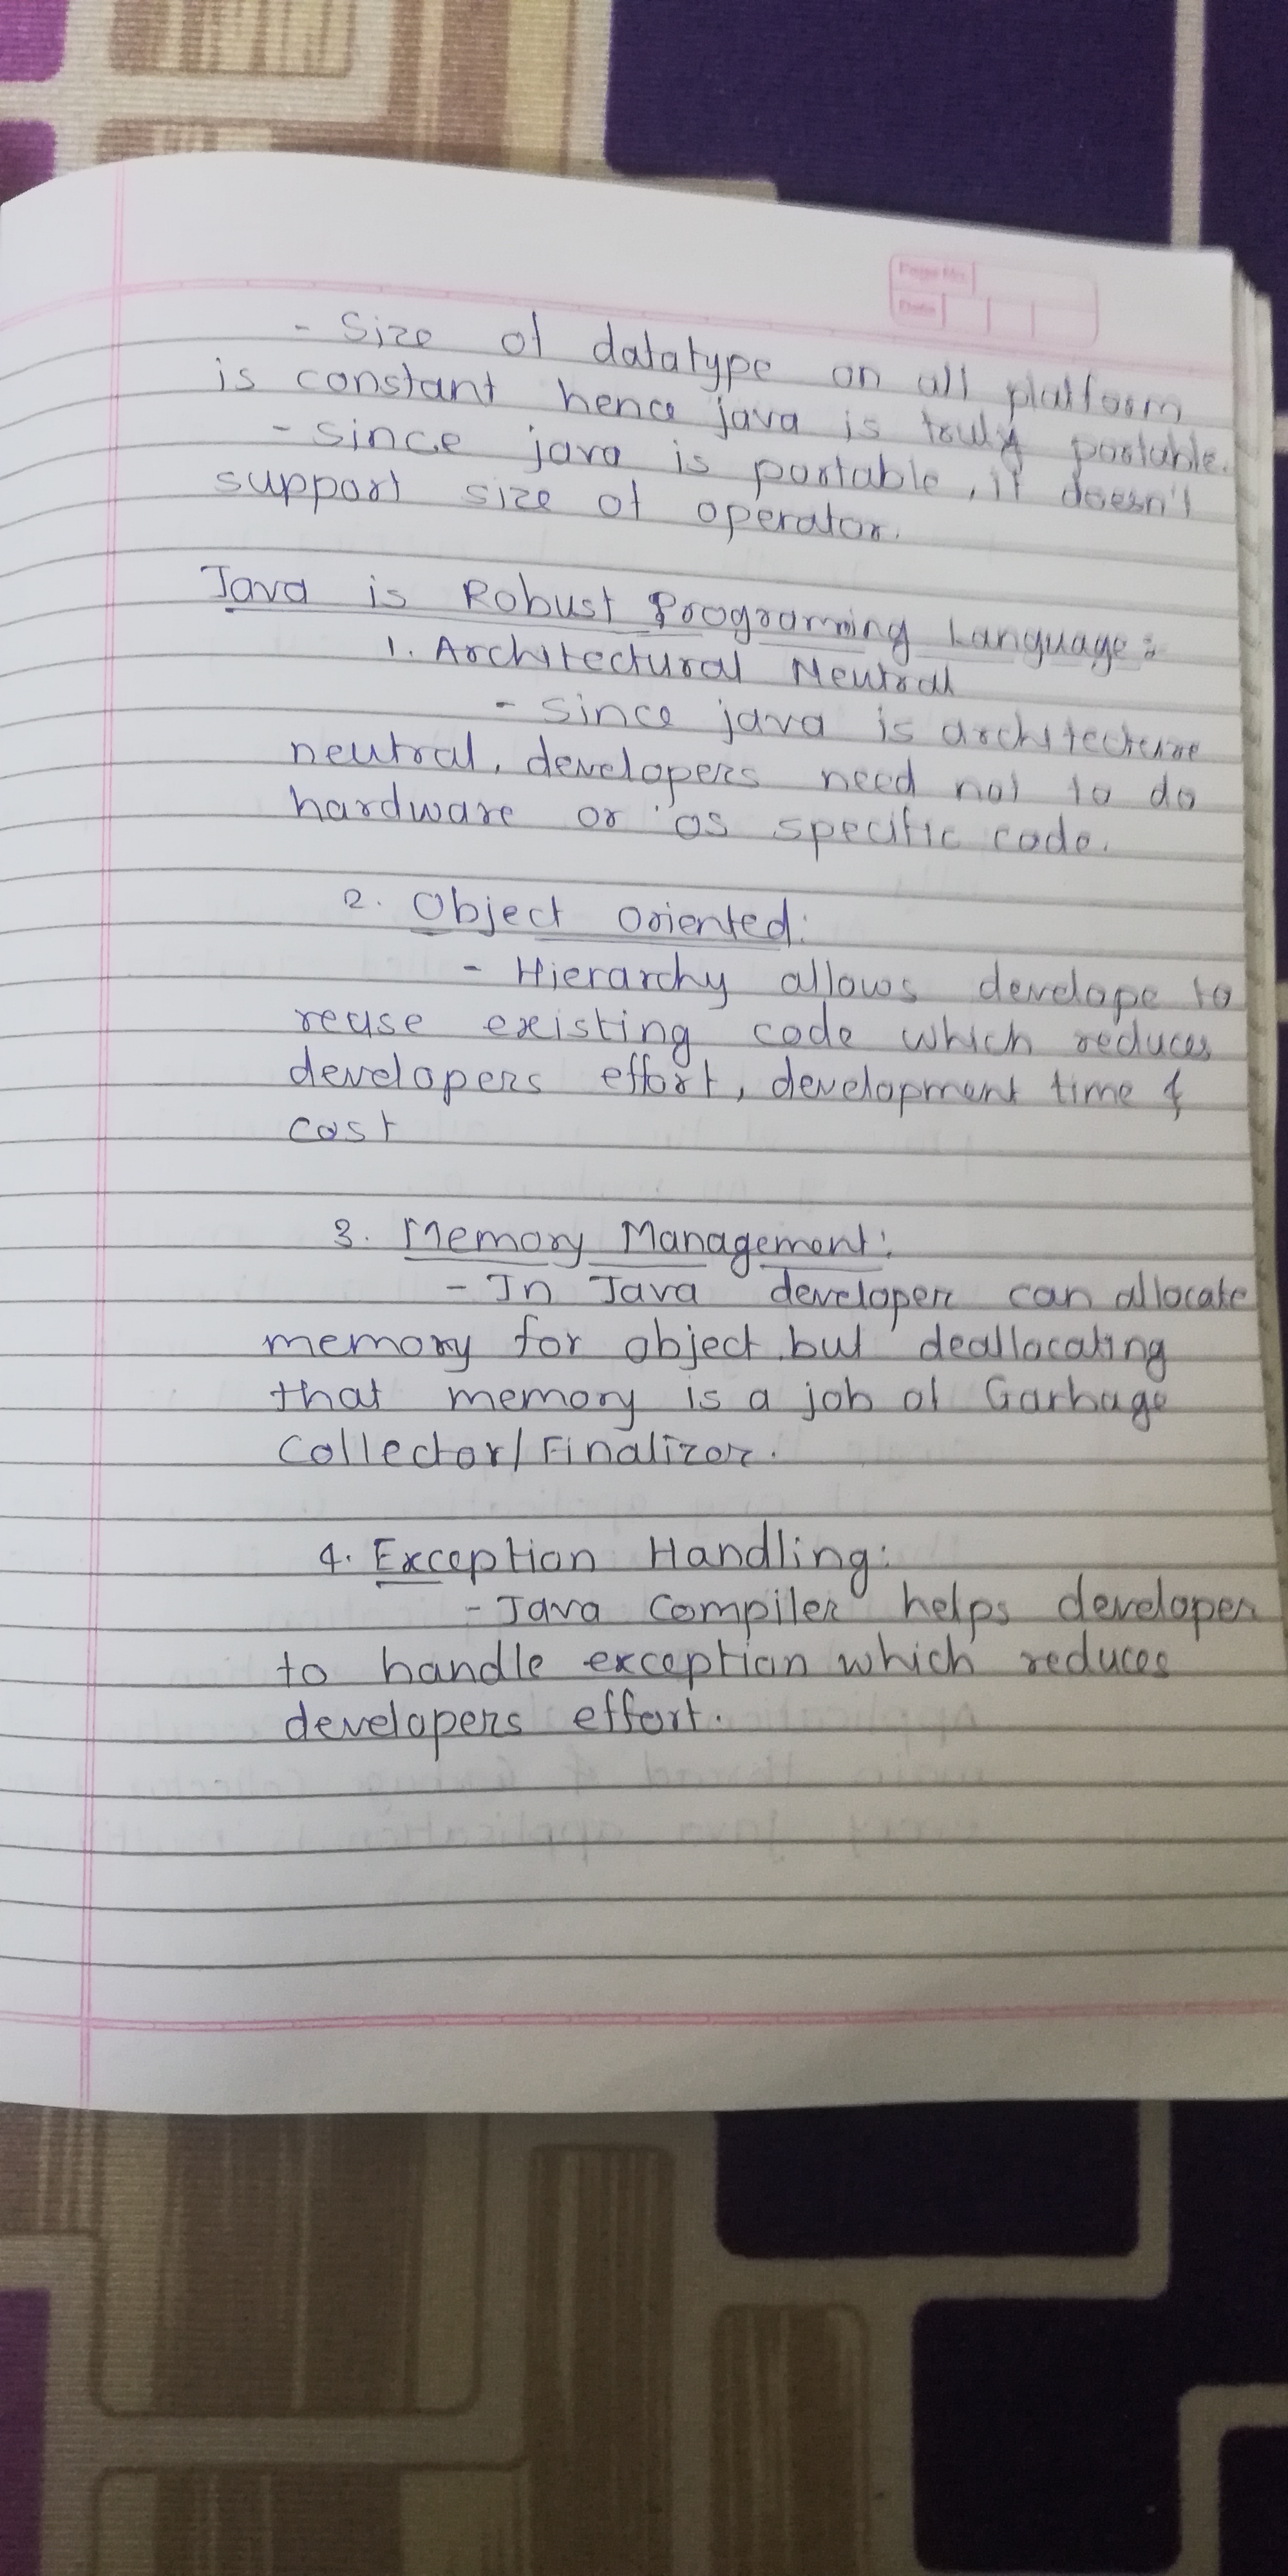 Page No.
Date
- Size of datatype on all platform
is constant hence java is truly portable.
- since java is portable, it doesn't
support size of operator.
Java is Robust Programing Language:
1. Architectural Neutral
- since java is architecture
neutral, developers need not to do
hardware or os specific code.
2. Object Oriented:
- Hierarchy allows develope to
reuse existing code which reduces
developers effort, development time &
cost
3. Memory Management:
- In Java developer can allocate
memory for object but deallocating
that memory is a job of Garbage
Collector/Finalizor.
4. Exception Handling:
- Java Compiler helps developer
to handle exception which reduces
developers effort.